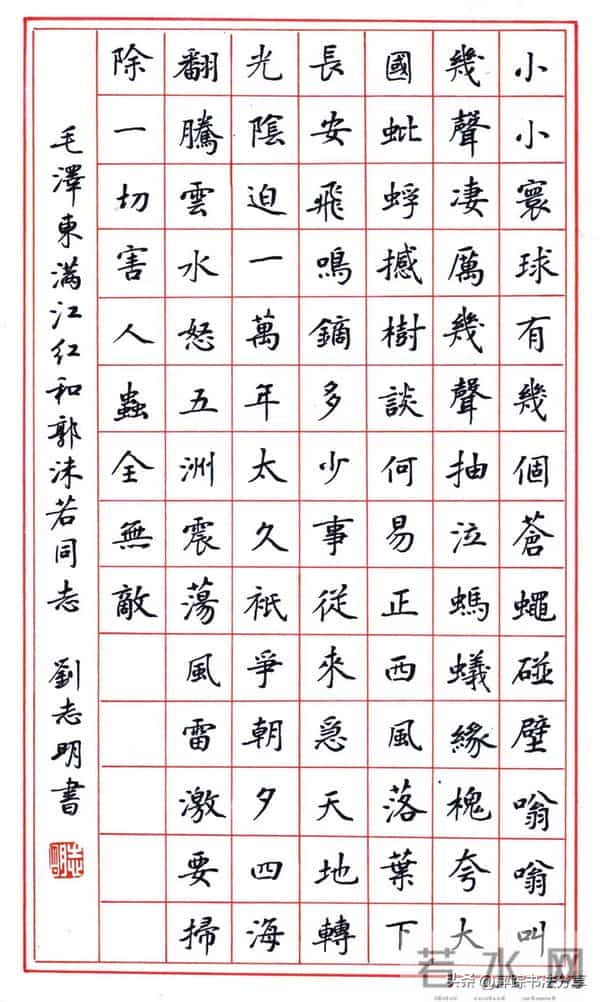 小小寰球有幾個蒼蠅碰壁嗡嗡叫
幾聲凄厲幾聲抽泣螞蟻緣槐夸大
國蚍蜉撼樹談何易正西風落葉下
長安飛鳴鏑多少事從來急天地轉
光陰迫一萬年太久祇爭朝夕四海
翻騰雲水怒五洲震蕩風雷激要掃
除一切害人蟲全無敵
毛澤東满江红和郭沫若同志 劉志明書
志明
若水网
头条 书法分享